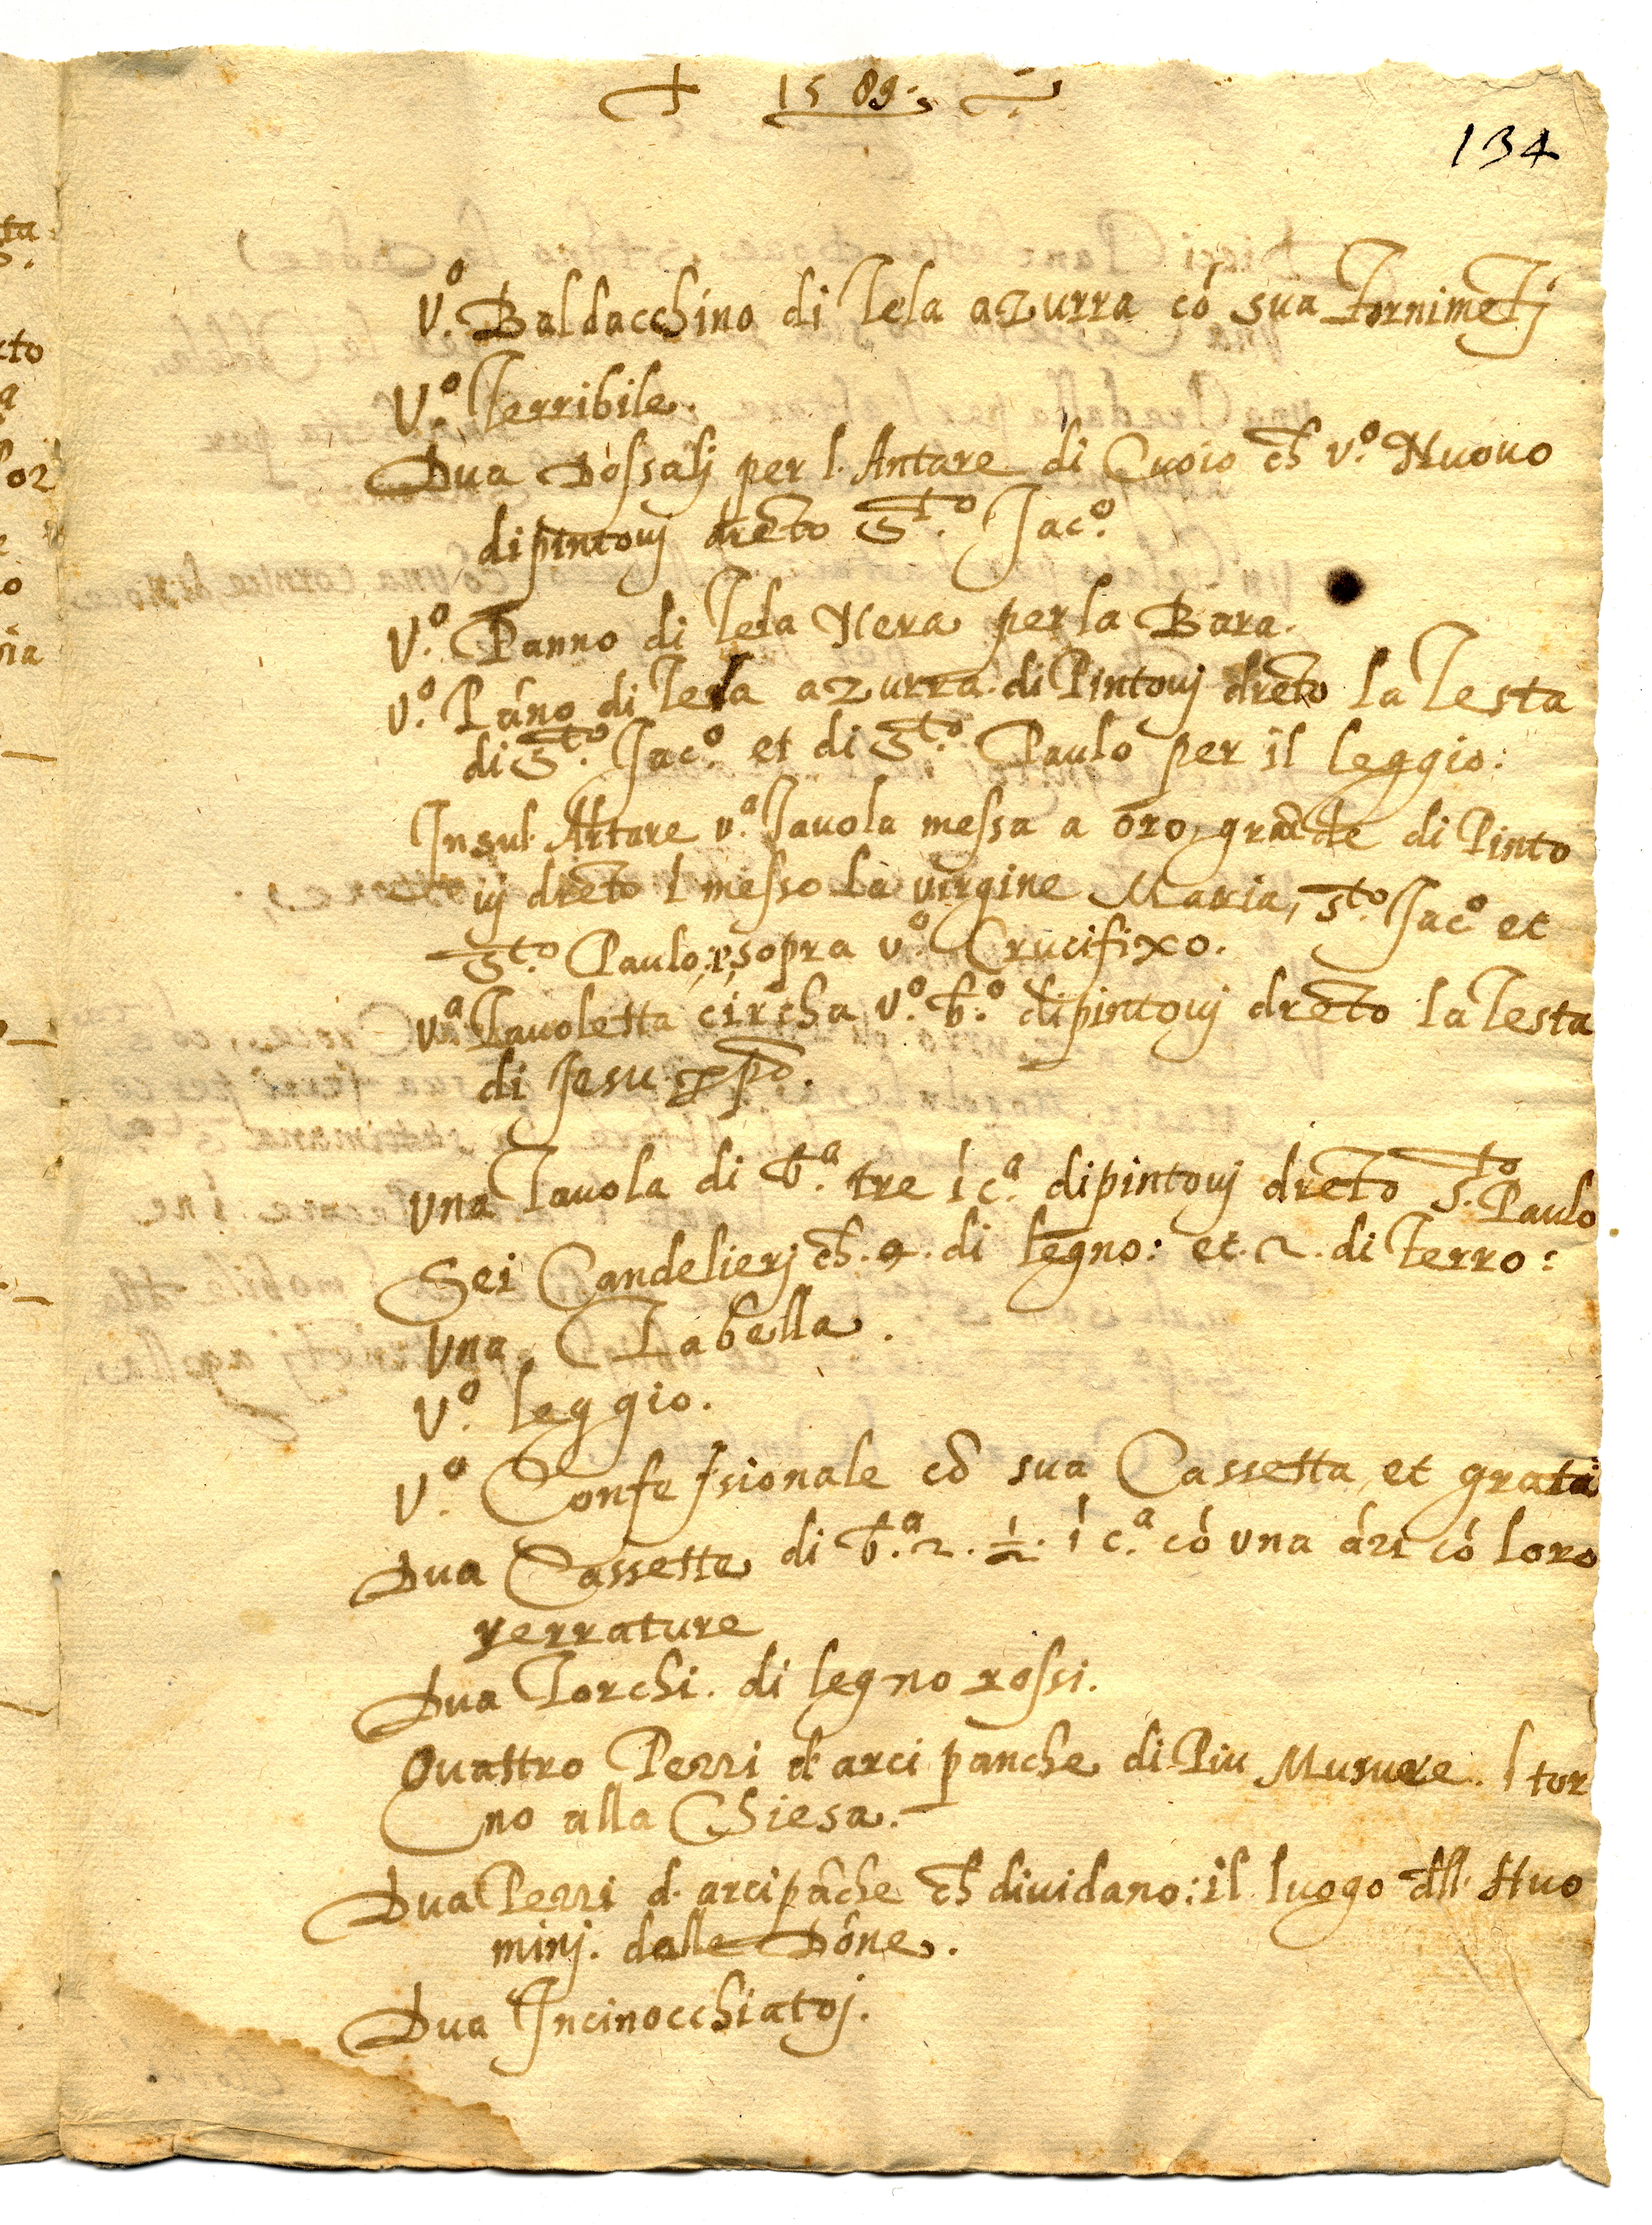 1589
134
V.º Baldacchino di Tela azurra cō sua Fornimētj
V.º Terribile.
Dua Dossalj per l. Antare di Cuoio ch v.º Nuouo
dipintouj drēto S.to Jac.º
V.º Panno di Tela Nera per la Bara.
V.º Pāno di Tela azurra. di Pintouj drēto la Testa
di S.to Jac.º et di S.to Paulo per il leggio:
Insul. Altare v.ª Tauola messa a oro, grāde di Pinto
uj drēto l messo la virgine Maria, S.to Jac.º et
S.to Paulo, sopra v.º Crucifixo.
V.ª Tauoletta circha v.º b.º dipintouj drēto la Testa
di Jesu xp̄o.
Vna Tauola di b.ª tre ī c.ª dipintouj drēto S.to Paulo
Sei Candelierj ch. 4. di legno: et. 2. di Ferro:
Vna Tabella.
V.º leggio.
V.º Confessionale cō sua Cassetta et grata
Dua Cassette di b.ª 2. ½. ī c.ª cō una āzi cō loro
serrature
Dua Torchi. di legno rossi.
Quattro Pezzi d' arci panche di Piu Musure. ītor
no alla Chiesa.
Dua Pezzi d. arcipāche ch diuidano: il luogo dll. Huo
minj. dalle Dōne.
Dua Incinocchiatoj.